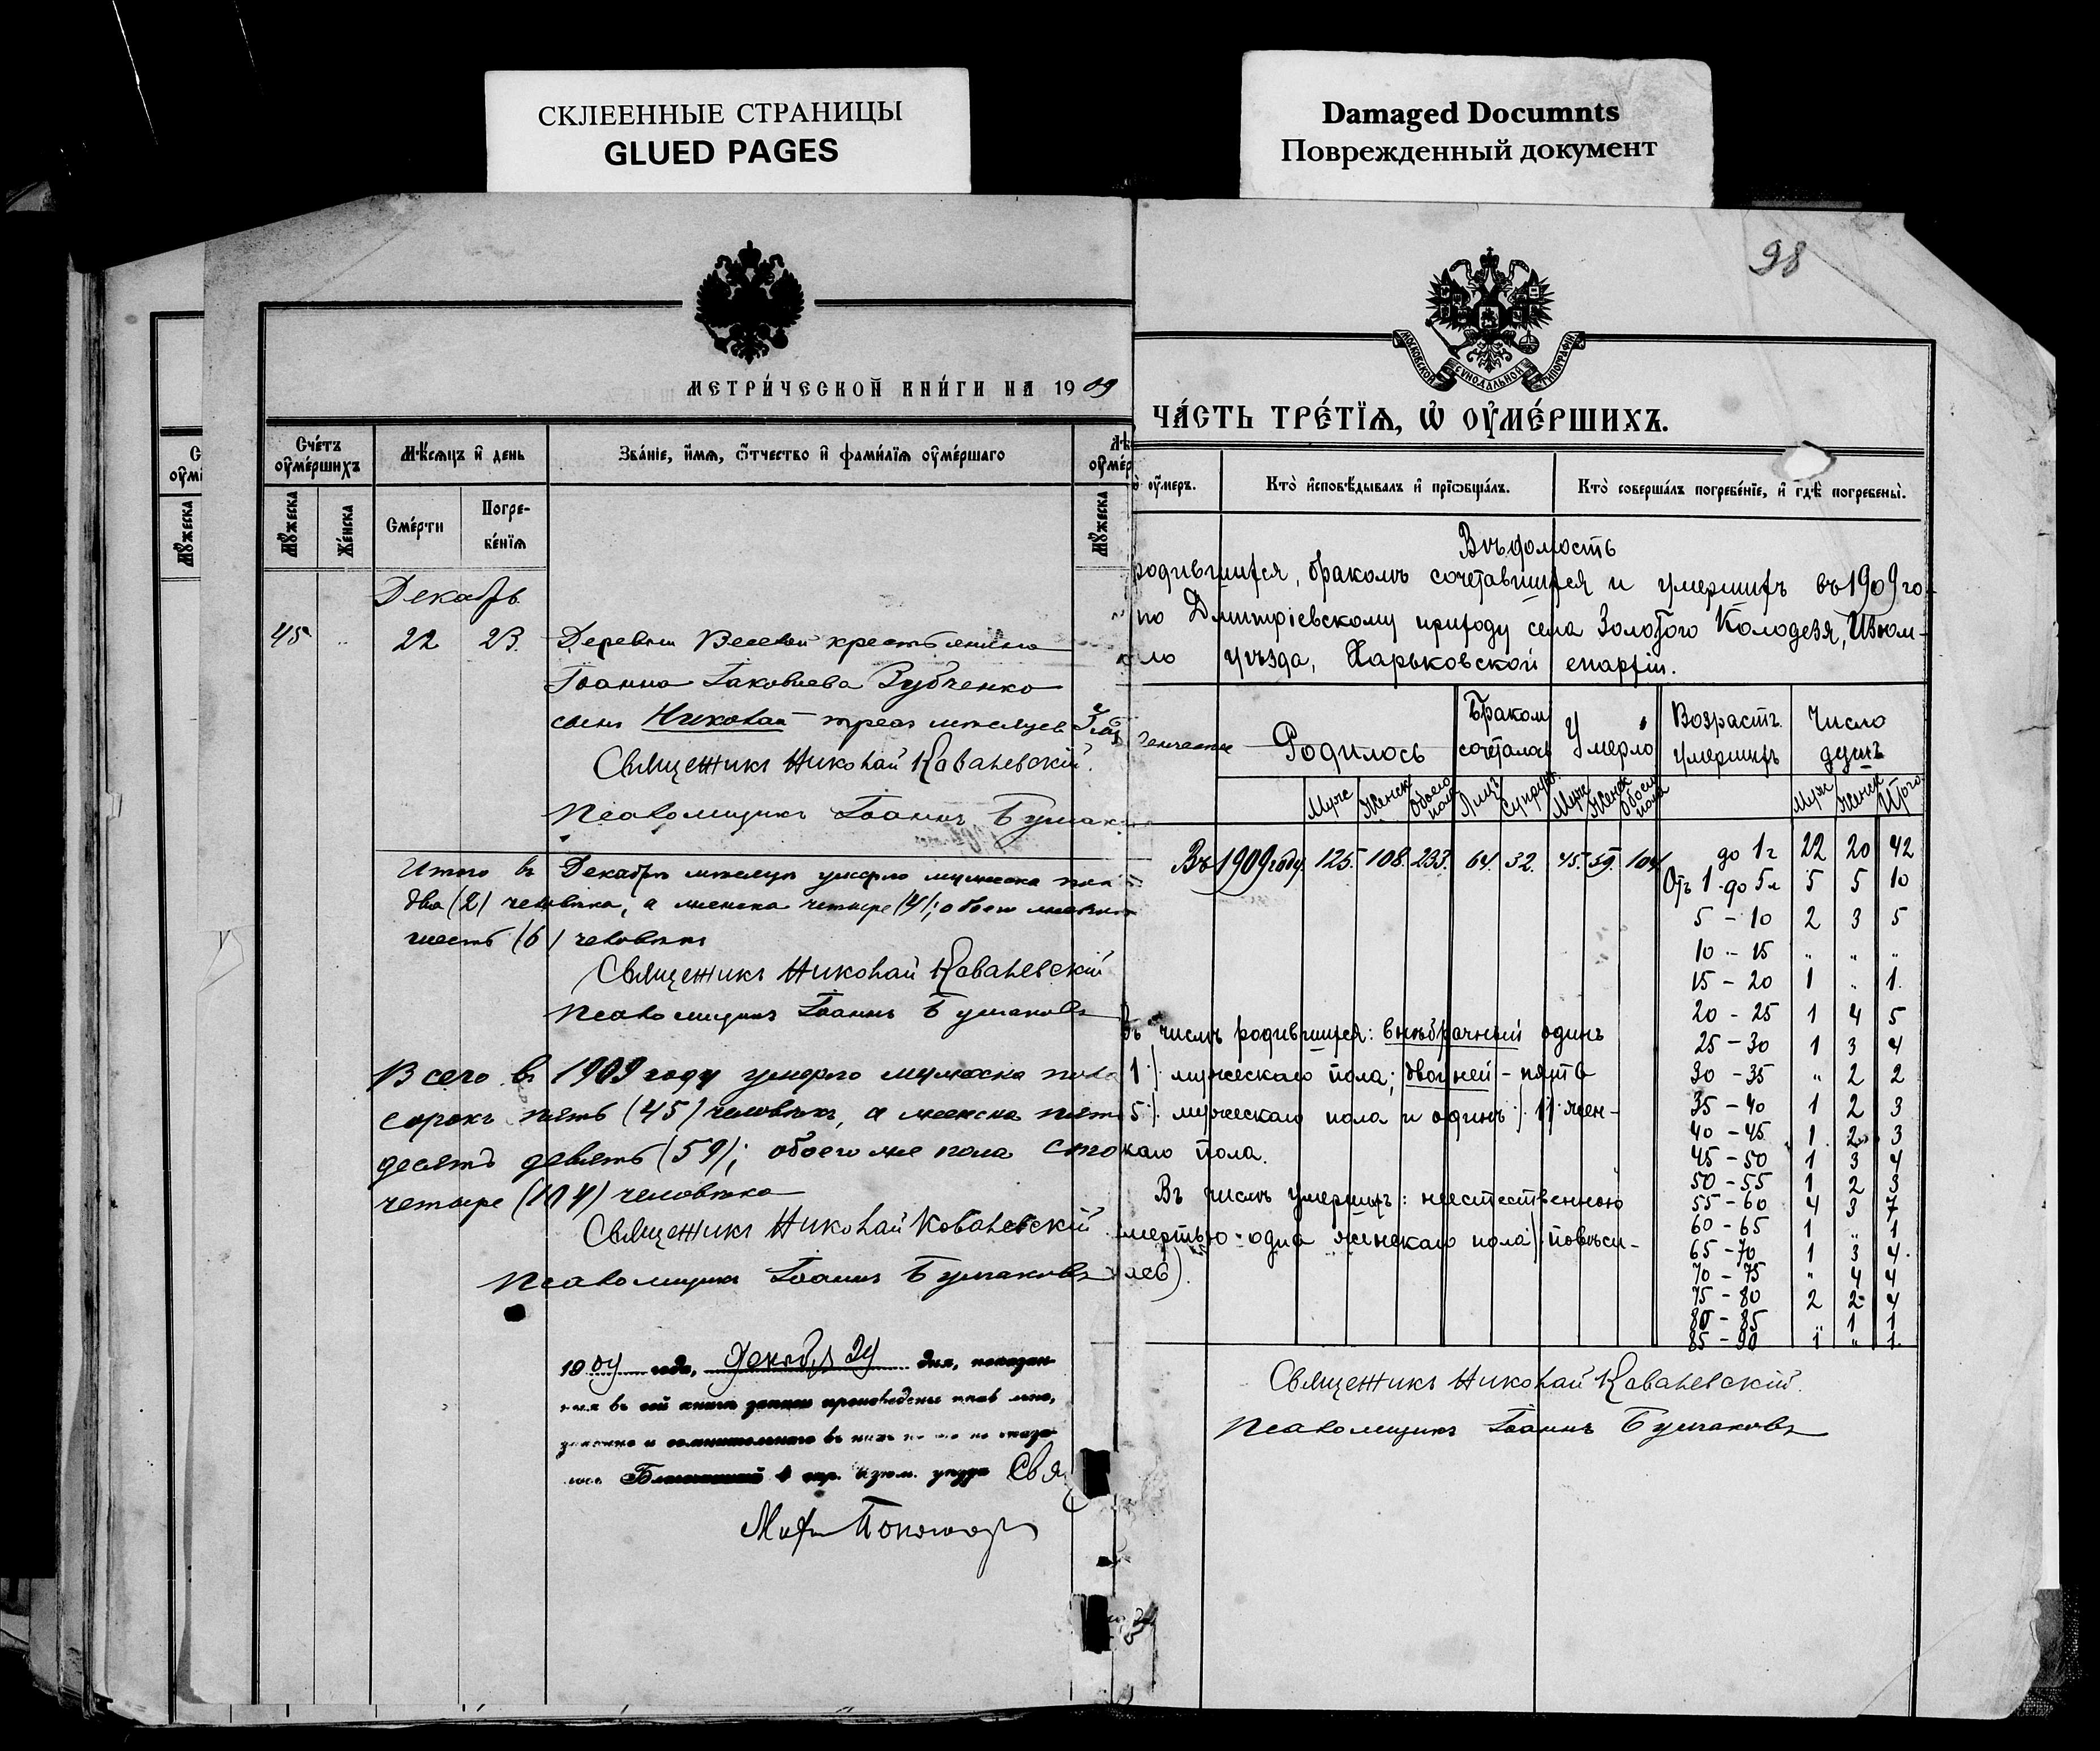 СКЛЕЕННЫЕ СТРАНИЦЫ
GLUED PAGES
Damaged Documnts
Поврежденный документ
98
МЕТРИ́ЧЕСКОЙ КНИ́ГИ НА 1909
Сче́тъ оу҆ме́ршихъ
Мѣ́сяцъ и҆ день
Зва́нїе, и҆́мя, ѻ҆́тчество и҆ фами́лїя оу҆ме́ршаго
Мꙋ́жеска
Же́нска
Сме́рти
Погре-
бе́нїя
Мꙋ́жеска
Декабрь
45 " 22 23. Деревни Веселой крестьянина
Іоанна Іаковлева Зубченко
сынъ Николай трехъ месяцевъ 3
Священникъ Николай Ковалевскій.
Псаломщикъ Іоаннъ
Итого въ Декабрѣ месяце умерло мужеска пола
два (2) человека, а женска четыре (4); обоего
шесть (6) человекъ
Священникъ Николай Ковалевскій
Псаломщикъ Іоаннъ Бушаковъ
Всего въ 1909 году умерло мужеска пола
сорокъ пять (45) человекъ, а женска пять
десятъ девять (59); обоего же пола сто
четыре (104) человека
Священникъ Николай Ковалевскій
Псаломщикъ Іоаннъ Бушаковъ
1909 года, Декабря 24 дня, показан-
ныя въ сей книге записи произведены
и сомнительнаго въ нихъ не оказа-
окр. Изюм. уезда Свя
ЧА́СТЬ ТРЕ́ТЇЯ, Ѡ҆ ОУ҆МЕ́РШИХЪ.
МОСКОВСКОЙ СУНОДАЛЬНОЙ ТИПОГРАФІИ
оу҆меръ.
Кто̀ и҆сповѣ́дывалъ и҆ прїѡбща́лъ.
Кто̀ соверша́лъ погребе́нїе, и҆ гдѣ̀ погребены̀.
Вѣдомость
родившихся, бракомъ сочетавшихся и умершихъ въ 1909 го-
по Димитріевскому приходу села Золотого Колодезя, Изюм-
уѣзда, Харьковской епархіи.
Родилось
Бракомъ сочеталось
Умерло
Возрастъ умершихъ
Число душъ
Муж Женск Обоего пола Лицъ Супруж. Муж Женск Обоего пола Муж Женск Итого
Въ 1909 году. 125. 108. 233. 64. 32. 45. 59. 104
до 1 г 22 20 42
Отъ 1 до 5 л 5 5 10
5 - 10 2 3 5
10 - 15 " " "
15 - 20 1 " 1.
20 - 25 1 4 5
25 - 30 1 3 4
30 - 35 " 2 2
35 - 40 1 2 3
40 - 45 1 2 3
45 - 50 1 3 4
50 - 55 1 2 3
55 - 60 4 3 7
60 - 65 1 " 1
65 - 70 1 3 4.
70 - 75 " 4 4
75 - 80 2 2 4
80 - 85 " 1 1
85 - 90 1 " 1.
Въ числѣ родившихся: внѣбрачный одинъ
1) мужескаго пола; двойней - пять
5) мужескаго пола и одинъ (1) жен-
скаго пола.
Въ числѣ умершихъ: неестественною
смертью - одна женскаго пола (повѣси-
лась).
Священникъ Николай Ковалевскій.
Псаломщикъ Іоаннъ Бушаковъ